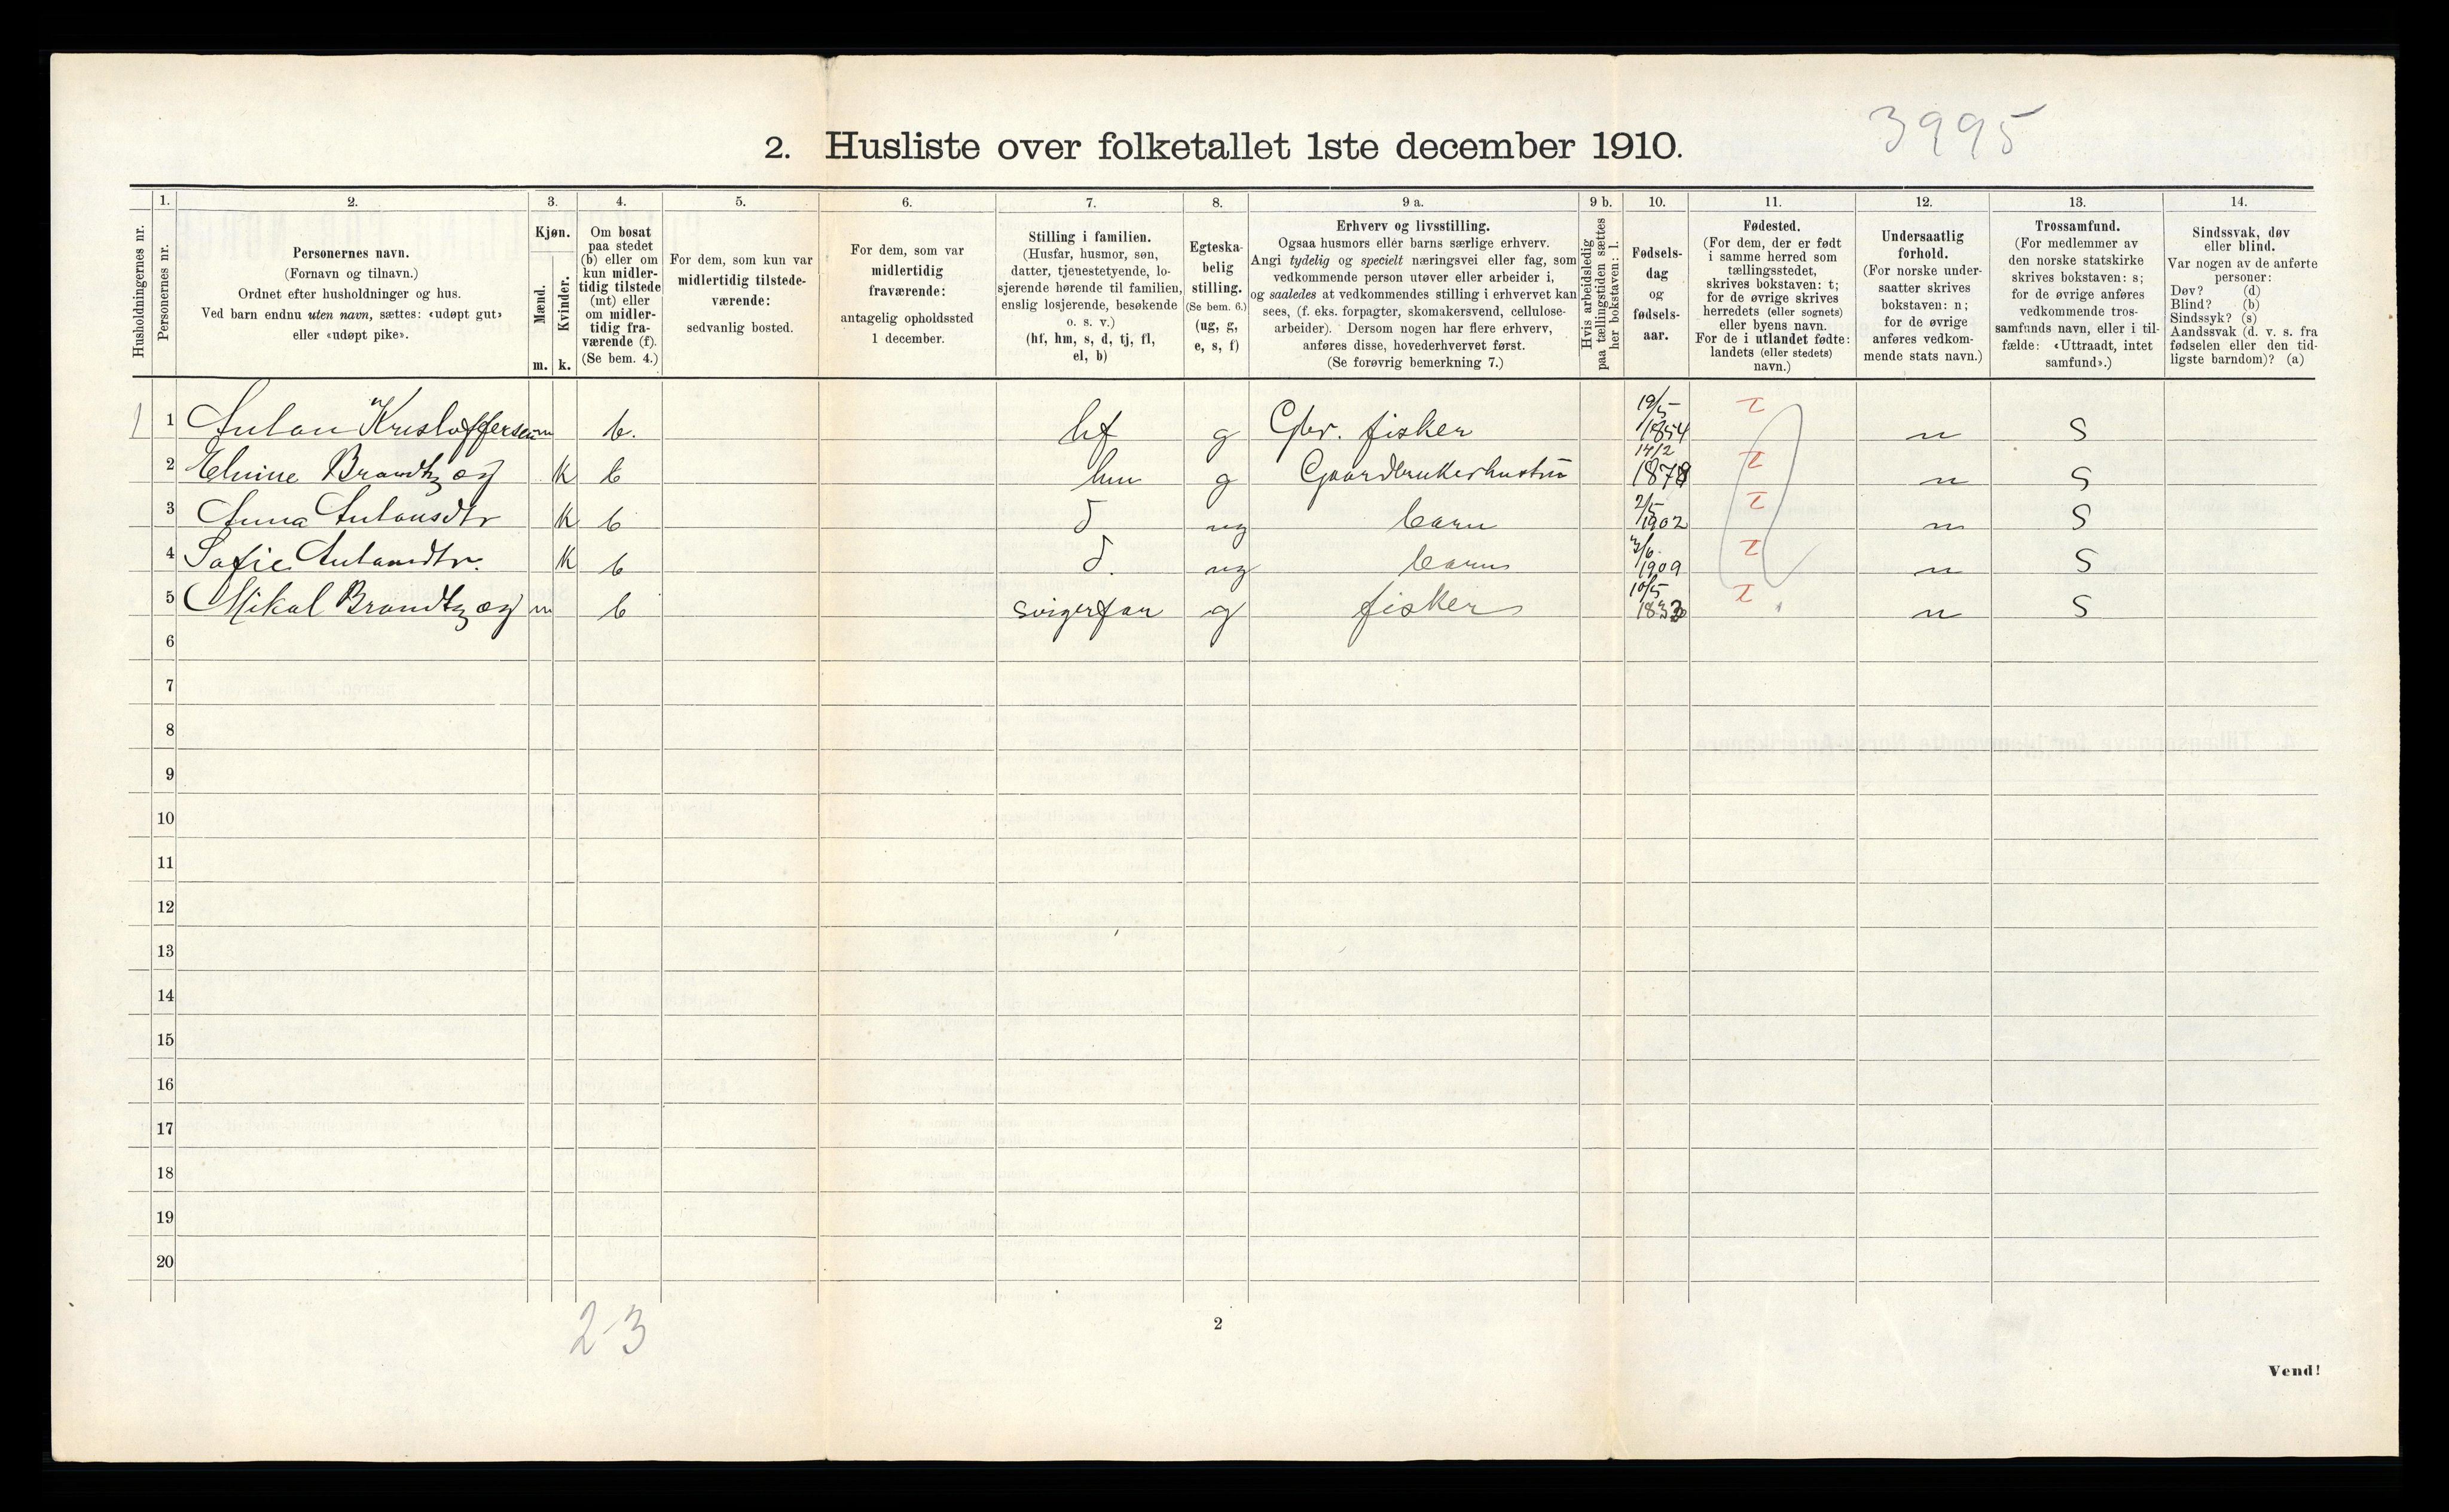 3995
2. Husliste over folketallet 1ste december 1910.
Husholdningernes nr.
1.
Personernes nr.
2.
Personernes navn.
(Fornavn og tilnavn.)
Ordnet efter husholdninger og hus.
Ved barn endnu uten navn, sættes: «udøpt gut»
eller «udøpt pike».
3.
Kjøn.
Mænd.
Kvinder.
m. k.
4.
Om bosat
paa stedet
(b) eller om
kun midler-
tidig tilstede
(mt) eller
om midler-
tidig fra-
værende (f).
(Se bem. 4.)
5.
For dem, som kun var
midlertidig tilstede-
værende:
sedvanlig bosted.
6.
For dem, som var
midlertidig
fraværende:
antagelig opholdssted
1 december.
7.
Stilling i familien.
(Husfar, husmor, søn,
datter, tjenestetyende, lo-
sjerende hørende til familien,
enslig losjerende, besøkende
o. s. v.)
(hf, hm, s, d, tj, fl,
el, b)
8.
Egteska-
belig
stilling.
(Se bem. 6.)
(ug, g,
e, s, f)
9 a.
Erhverv og livsstilling.
Ogsaa husmors eller barns særlige erhverv.
Angi tydelig og specielt næringsvei eller fag, som
vedkommende person utøver eller arbeider i,
og saaledes at vedkommendes stilling i erhvervet kan
sees, (f. eks. forpagter, skomakersvend, cellulose-
arbeider). Dersom nogen har flere erhverv,
anføres disse, hovederhvervet først.
(Se forøvrig bemerkning 7.)
9 b.
Hvis arbeidsledig
paa tællingstiden sættes
her bokstaven: l.
10.
Fødsels-
dag
og
fødsels-
aar.
11.
Fødested.
(For dem, der er født
i samme herred som
tællingsstedet,
skrives bokstaven: t;
for de øvrige skrives
herredets (eller sognets)
eller byens navn.
For de i utlandet fødte:
landets (eller stedets)
navn.)
12.
Undersaatlig
forhold.
(For norske under-
saatter skrives
bokstaven: n;
for de øvrige
anføres vedkom-
mende stats navn.)
13.
Trossamfund.
(For medlemmer av
den norske statskirke
skrives bokstaven: s;
for de øvrige anføres
vedkommende tros-
samfunds navn, eller i til-
fælde: «Uttraadt, intet
samfund».)
14.
Sindssvak, døv
eller blind.
Var nogen av de anførte
personer:
Døv? (d)
Blind? (b)
Sindssyk? (s)
Aandssvak (d. v. s. fra
fødselen eller den tid-
ligste barndom)? (a)
1 1 Anton Kristoffersen m b. hf g Gbr. fisker 19/5 1854 t n S
2 Brandtzæg k b hm g Gaardbrukerhustru 14/2 1878 t n S
3 Anna Antonsdtr k b d ug barn 2/5 1902 t n S
4 Sofie Antonsdtr. k b d. ug barn 3/6 1909 t n S
5 Mikal Brandtzæg m b svigerfar g fisker 10/5 1833 t n S
6
7
8
9
10
11
12
13
14
15
16
17
18
19
20
2-3
2
Vend!